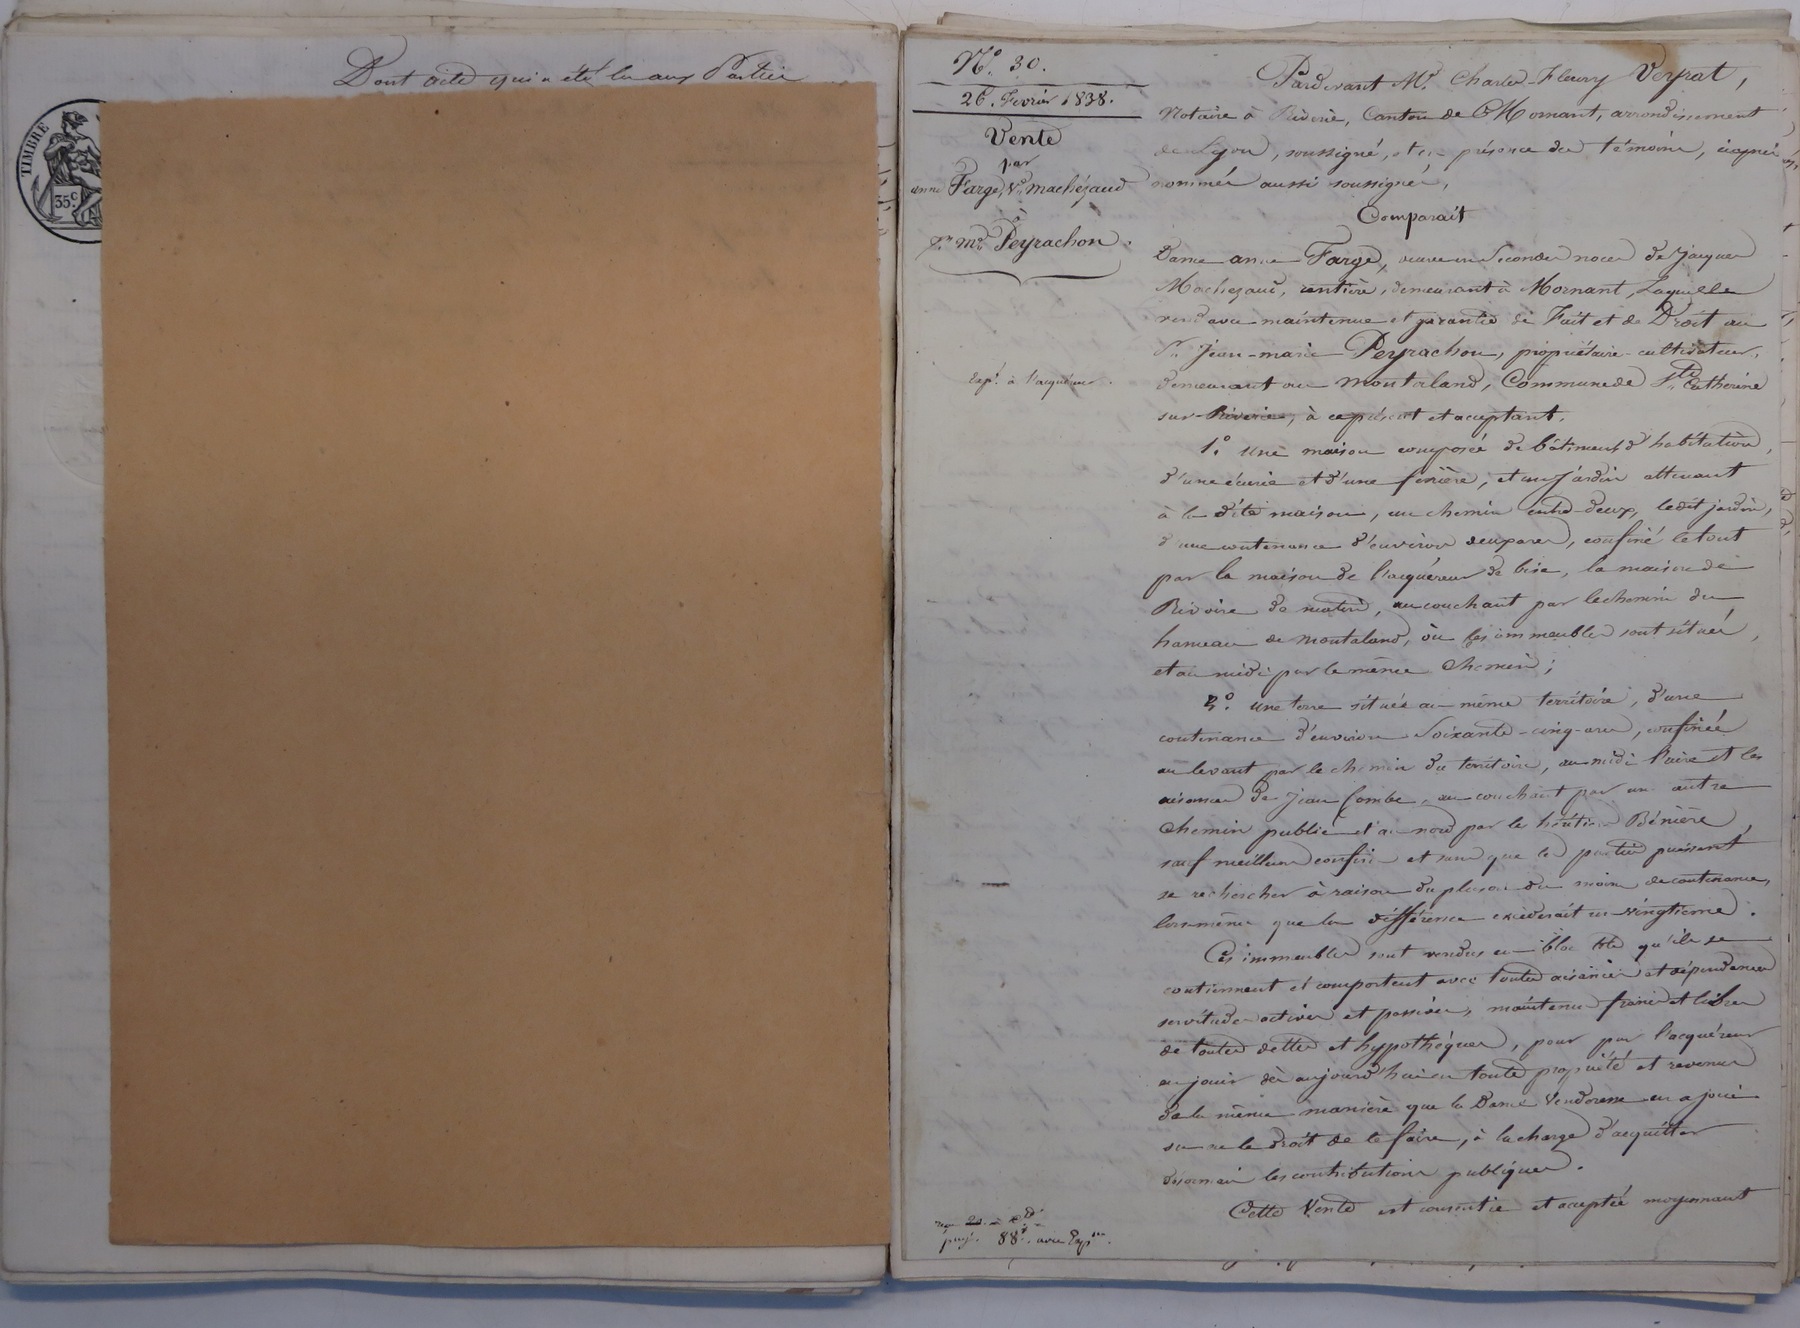 Dont acte qui a été lu aux Parties
TIMBRE
35c.
N.o 30.
26. Février 1838.
Vente
par
anne Farge, Ve. machézaud
à
Sr. Md. Peyrachon.
Exp.n à l'acquéreur.
payé. 88f. avec Exp.on.
Pardevant Me. Charles-Fleury Veyrat,
Notaire à Riverie, Canton de Mornant, arrondissement
de Lyon, soussigné, et en présence des témoins, ciaprès
nommés aussi soussignés,
Comparait
Dame anne Farge, veuve en Secondes noces de Jacques
Machezaud, rentière, demeurant à Mornant, Laquelle
vend avec maintenue et garantie de Fait et de Droit au
Sr. Jean-marie Peyrachon, propriétaire-cultivateur,
demeurant au Montaland, Commune de Ste. Catherine
sur-Riverie, à ce présent et acceptant.
1.o une maison composée de bâtiments d'habitation,
d'une écurie et d'une fenière, et un Jardin attenant
à la dite maison, un chemin entre-deux, ledit jardin,
d'une contenance d'environ deux ares, confiné le tout
par la maison de l'acquéreur de bise, la maison de
Rivoire de matin, au couchant par le chemin du
hameau de montaland, où les immeubles sont situés,
et au midi par le même Chemin;
2.o une terre située au même territoire, d'une
contenance d'environ Soixante-cinq ares, confinée
au levant par le chemin du territoire, au midi l'aire et les
aisances de Jean Combe, au couchant par un autre
Chemin public et au nord par les héritiers Bénière,
sauf meilleurs confins et sans que les parties puissent
se rechercher à raison du plus ou du moins de contenance,
lors même que la différence excéderait un vingtième.
Ces immeubles sont vendus en bloc tels qu'ils se
contiennent et comportent avec toutes aisances et dépendances
servitudes actives et passives, maintenus francs et libres
de toutes dettes et hypothèques, pour par l'acquéreur
en jouir dès aujourd'hui en toute propriété et revenus
de la même manière que la Dame Venderesse en a joui
ou eu le droit de le faire, à la charge d'acquitter
désormais les contributions publiques.
Cette Vente est consentie et acceptée moyennant